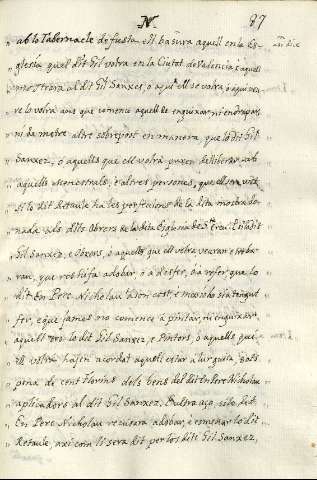 N. 87
ab lo Tabernacle de fusta ell ba sura aquell en la Es-
glesia quel dit Gil volra en la Ciutat de Valencia, e aquell
mostrara al dit Gil Sanxes, o a qui ell se volra, o a qui a ve-
re lo volra ans que comence aquell de enguixar ni endrapar,
ni de metre altre sobrepost en manera, que lo dit Gil
Sanxez, o aquells que ell volra puxen deliberar ab
aquells Menestrals, e altres persones, que ell si
si lo dit Retaule ha les perfeccions de la dita mostra do-
nada als dits Obrers de la dita Esglesia de Sta. Creu. E si lo dit
Gil Sanxez, e Obrers, o aquells que ell volra veuran e troba-
ran, que res hi fa adobar, o a desfer, o a refer que lo
dit En Pere Nicholau a son cost, e messio sia tengut
fer, e que james no comence a pintar, ni enguixar
aquell tro lo dit Gil Sanxez, e Pintors, o aquells que
ell volra hajen acordat aquell estar a lur guisa, sots
pena de cent florins dels bens del dit En Pere Nicholau
aplicadors al dit Gil Sanxez. E ultra aço, si lo dit
En Pere Nicholau recusara adobar, e esmenar lo dit
Retaule, axi com li sera dit per lo dit Gil Sanxez,